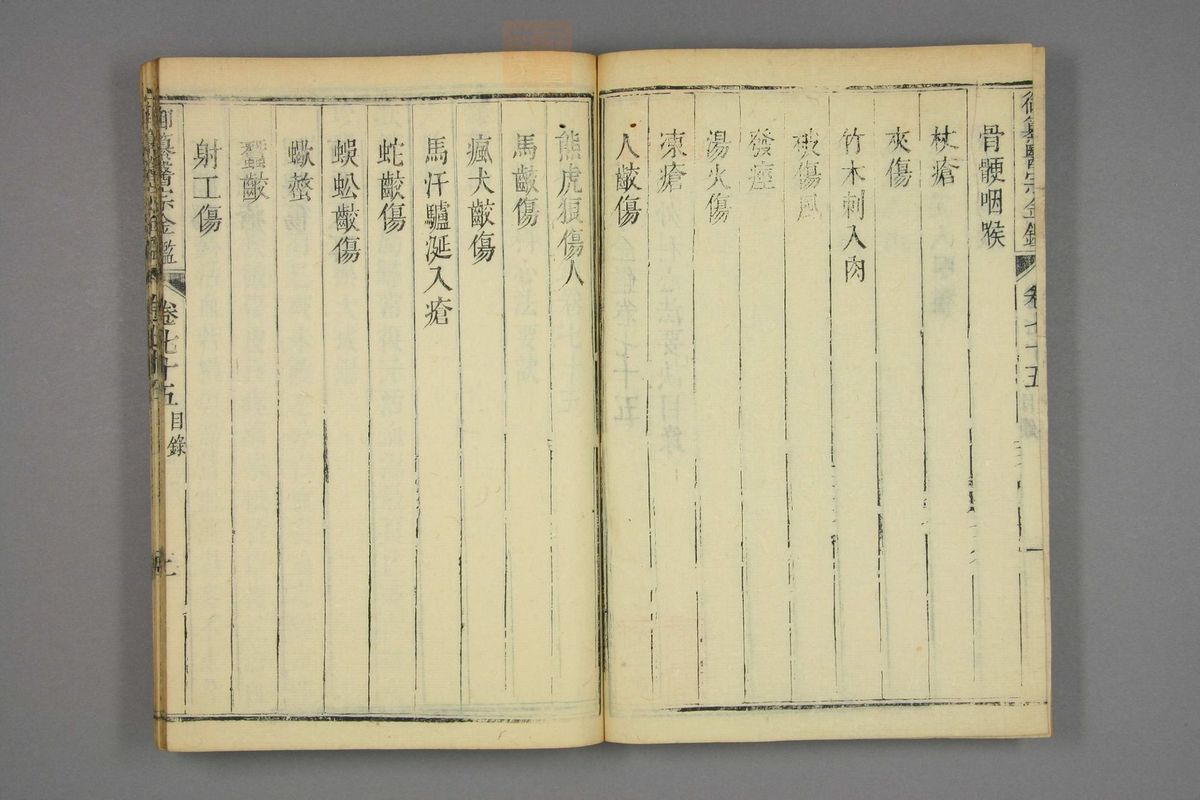 御纂醫宗金鑑 卷七十五 目錄 一
骨骾咽喉
杖瘡
夾傷
竹木刺入肉
破傷風
發痓
湯火傷
凍瘡
人齩傷
熊虎狼傷人
馬齩傷
瘋犬齩傷
馬汗驢涎入瘡
蛇齩傷
蜈蚣齩傷
蠍螫
蠶齩
射工傷
御纂醫宗金鑑 卷七十五 目錄